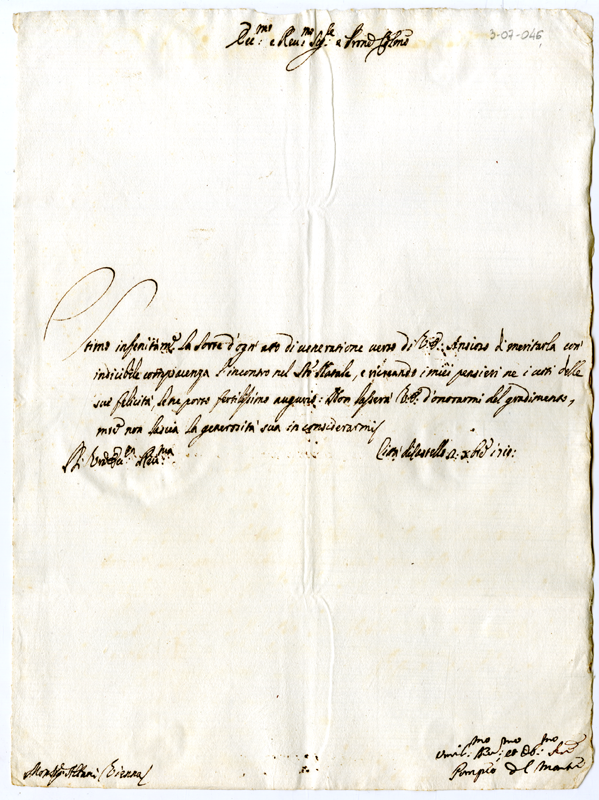 Ecc:mo e Reu:mo Sig:re e Pron Colmo
3-07-046
Stimo infinitamte la sorte d'ogn' atto di ueneratione uerso di V.E. Ansioso di meritarla con
indicibile compiacenza l'incontro nel Sto Natale, e ricreando i miei pensieri ne i uoti delle
sue felicità, le ne porto fertilissimo augurio: Non lascerà V.E. d'onorarmi del gradimento,
mtre non lascia la generosità sua in considerarmi
Di V. Ecc:za Reu:ma
Citta di Castello a: xbre 1710:
Monsr Albani Vienna
Umil:mo Deu:mo et Obb:mo Sre
Pompeo del Monte